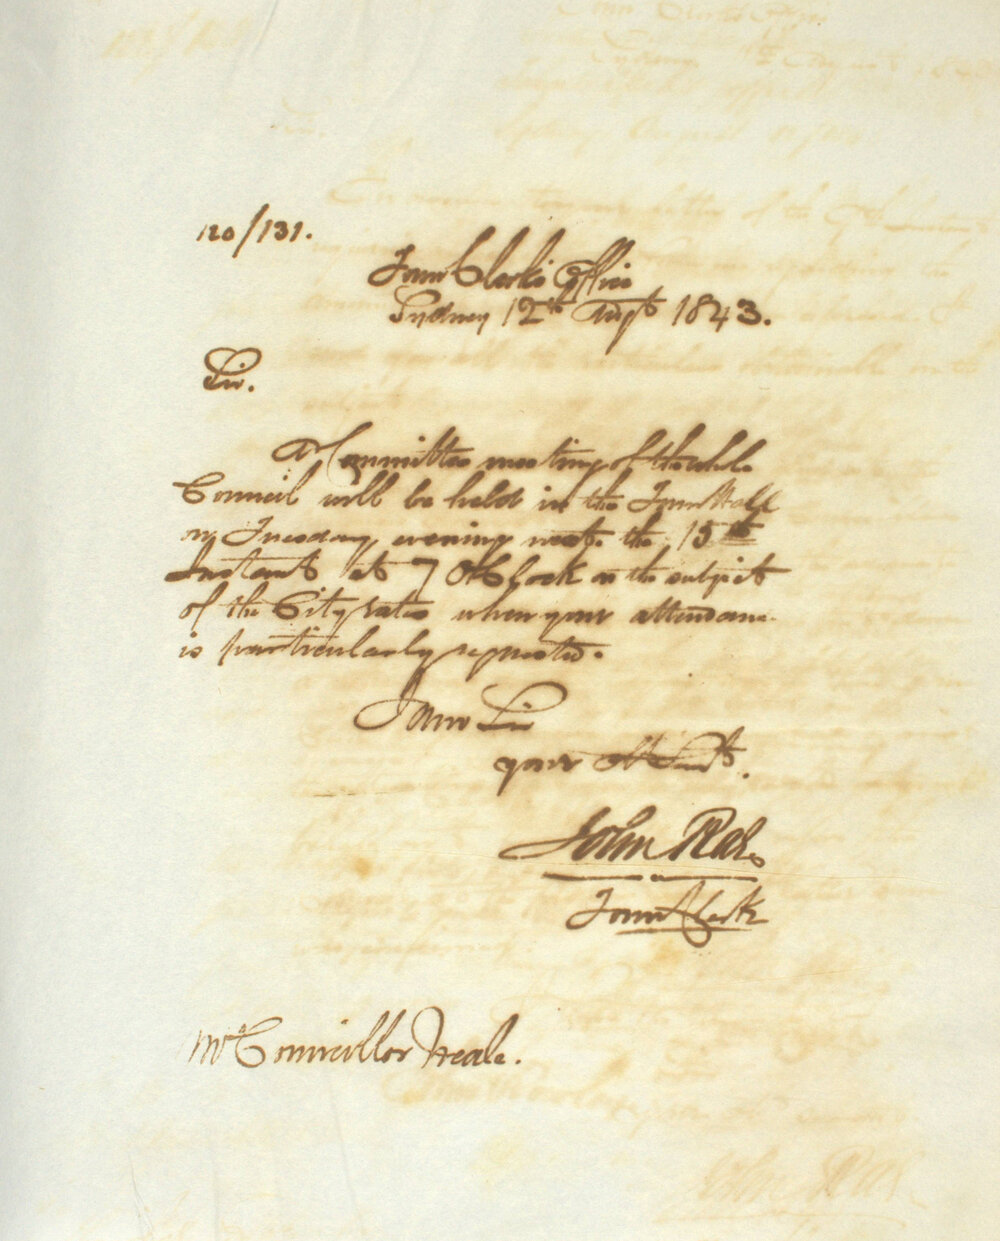 120/131.
Town Clerk's Office
Sydney 12th Augt 1843.
Sir.
A Committee meeting of the whole
Council will be held in the Town Hall
on Tuesday evening next. the 15th
Instant at 7 O'Clock on the subject
of the City rates when your attendance
is particularly requested.
I am Sir
your Obt Servt.
John Rae
Town Clerk
Mr Councillor Neale.